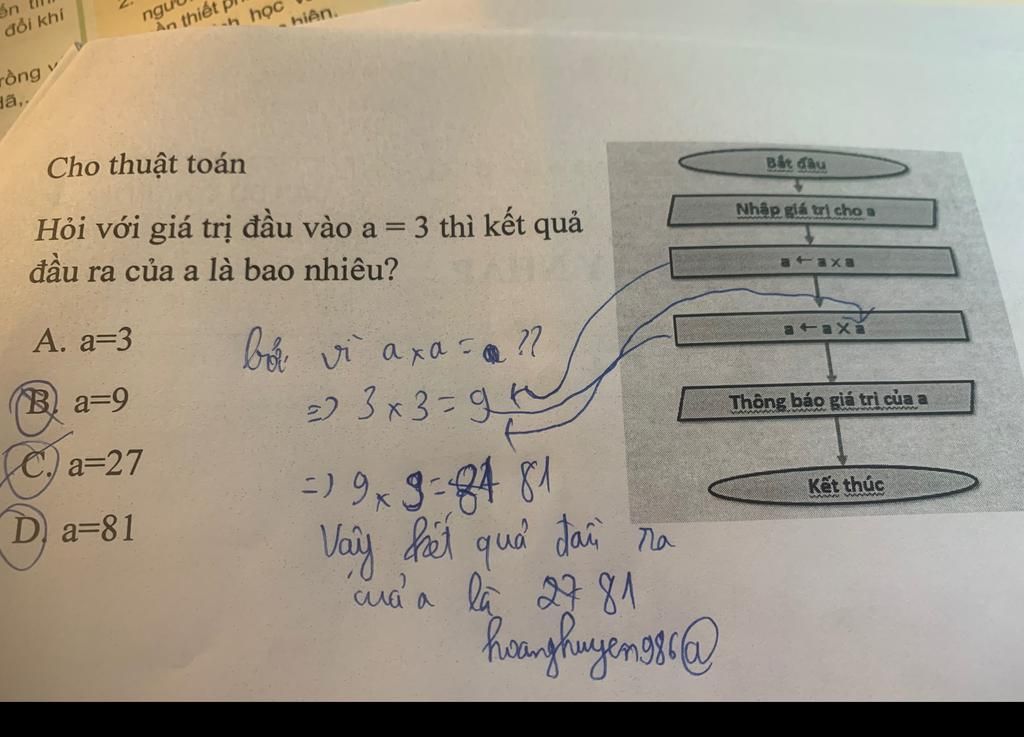 đổi khí
ần thiết
học
hiện.
rồng
Cho thuật toán
Hỏi với giá trị đầu vào a = 3 thì kết quả
đầu ra của a là bao nhiêu?
A. a=3
B. a=9
C. a=27
D. a=81
bởi vì a x a = a ??
=> 3 x 3 = 9
=> 9 x 9 = 81 81
Vậy kết quả đầu ra
của a là 27 81
hoanghuyen986@
Bắt đầu
Nhập giá trị cho a
a ← a x a
a ← a X a
Thông báo giá trị của a
Kết thúc